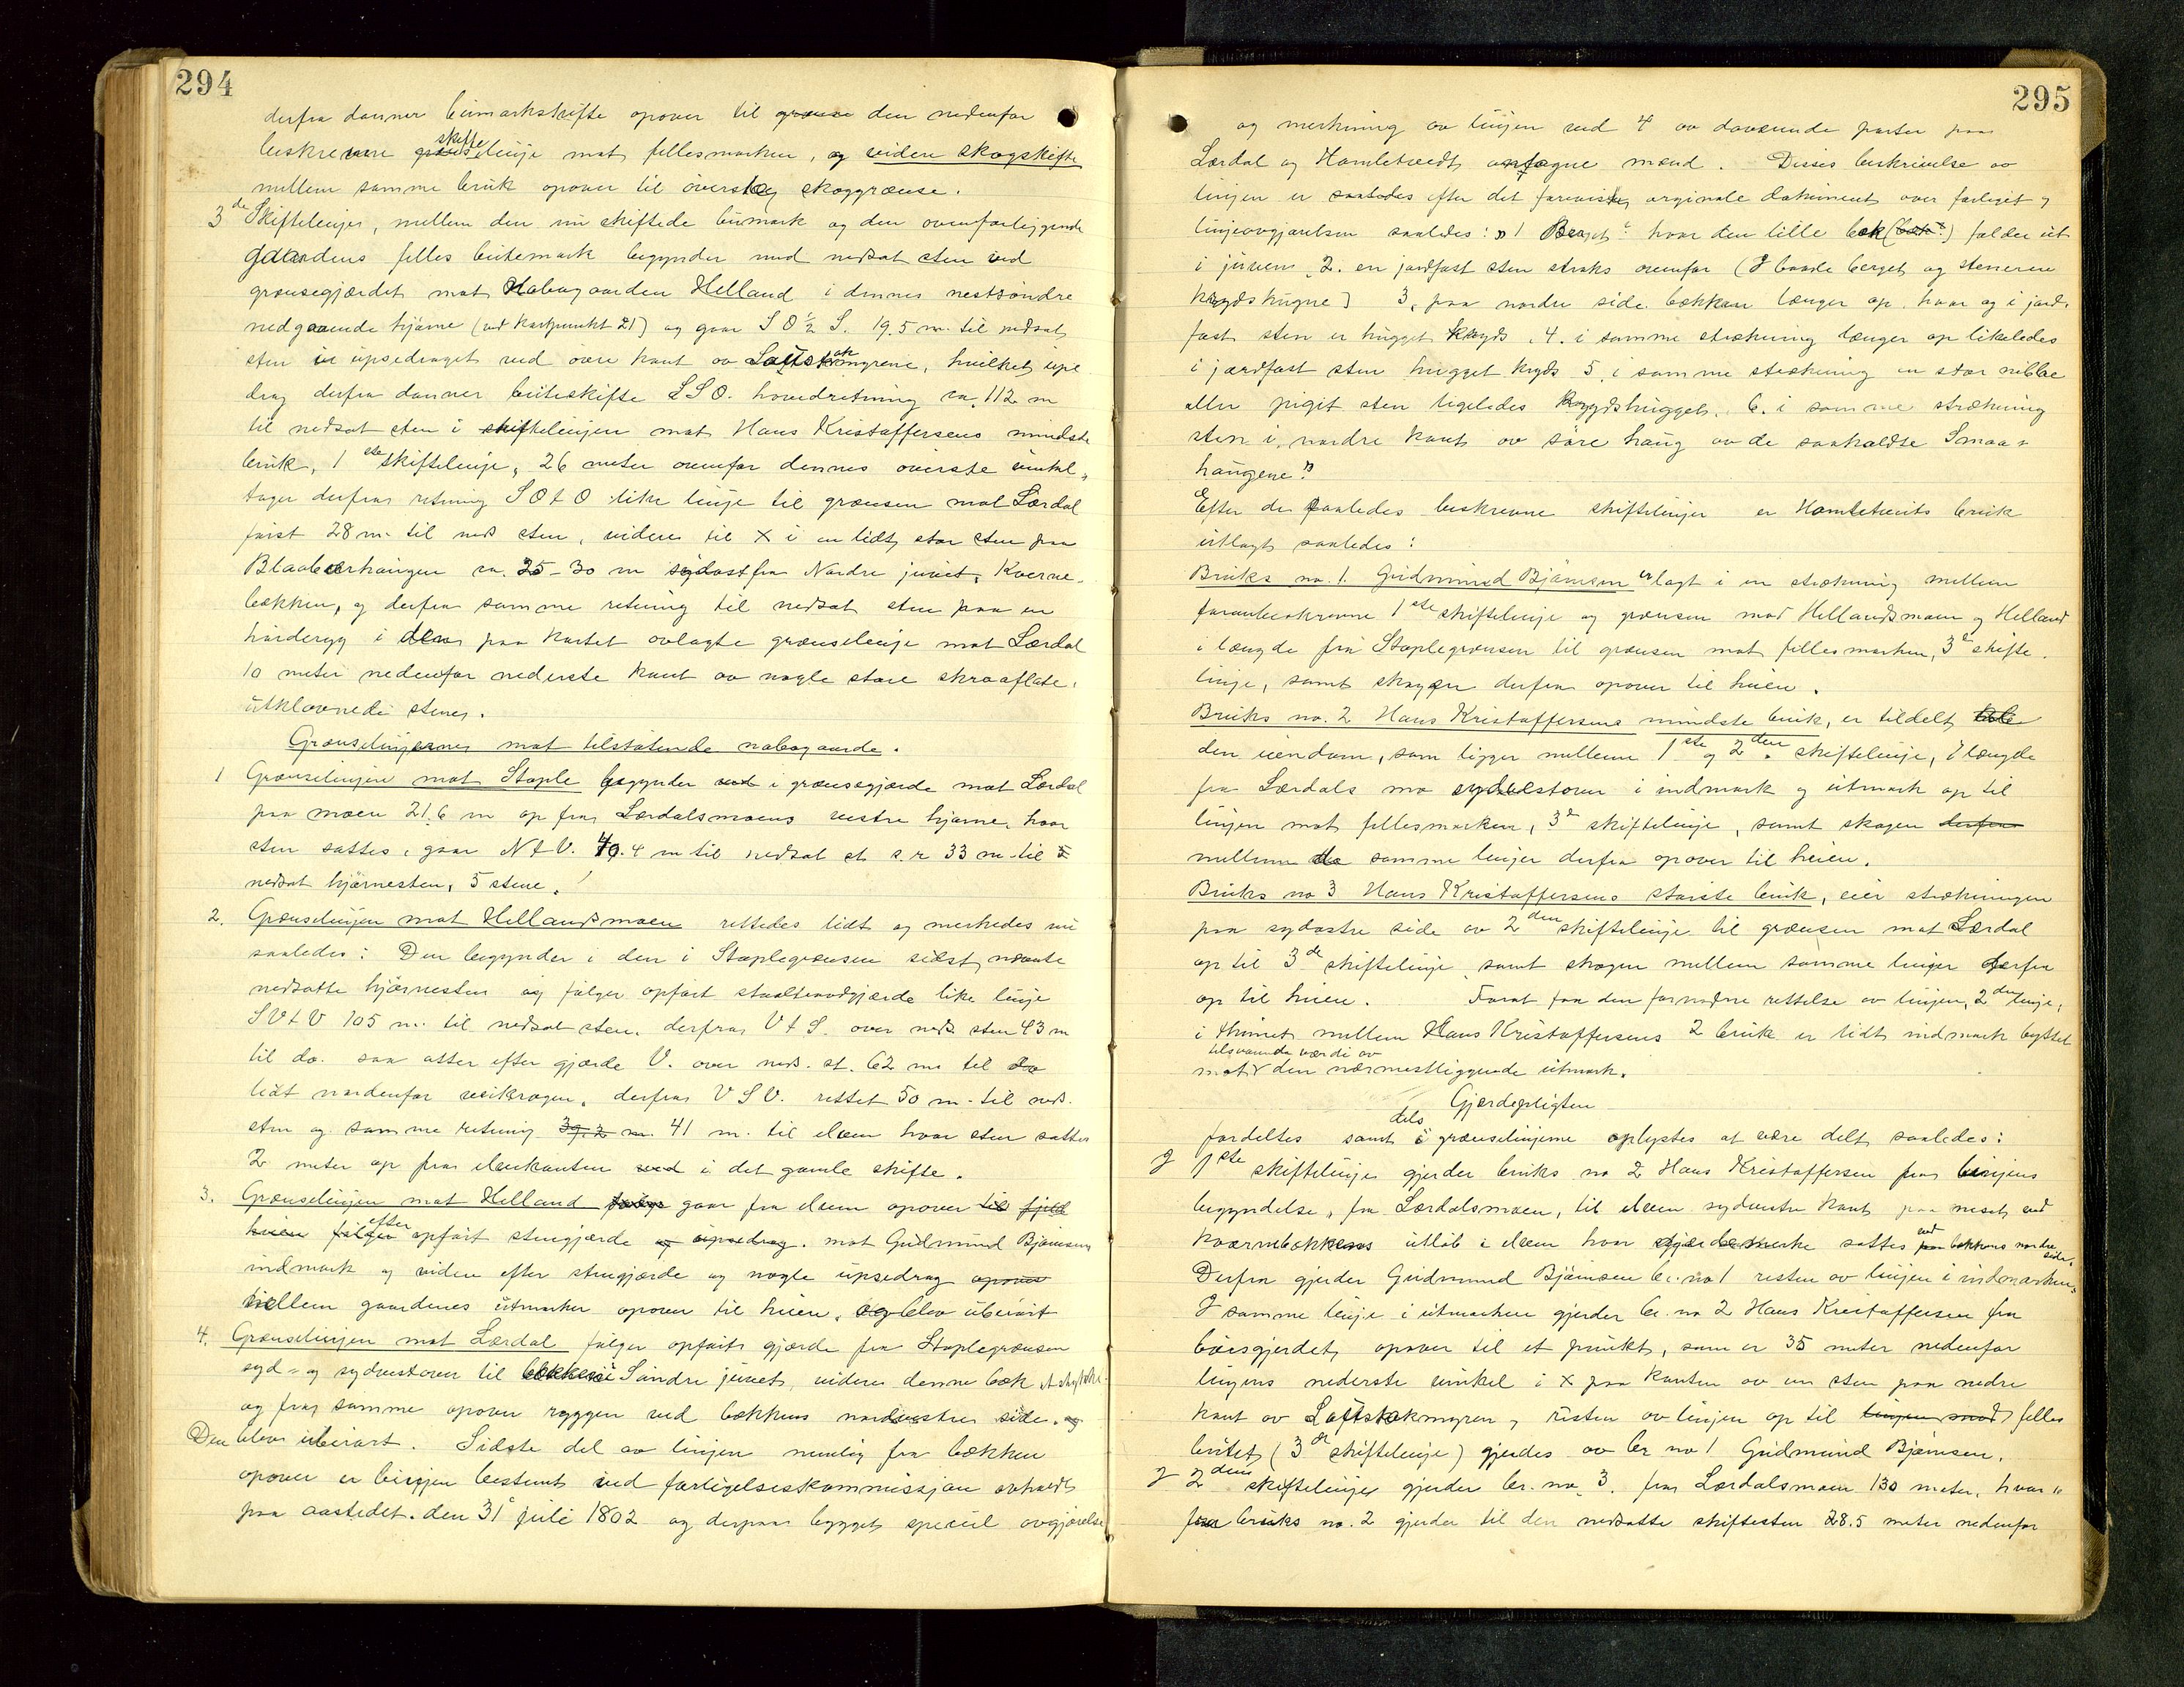 294
derfra danner bumarkskifte opover til grænse den nedenfor
beskrevne skifte linje mot fellesmarken, og videre skogskifte
mellem samme bruk opover til øverste skoggrænse.
3de Skiftelinjer, mellem den nu skiftede bumark og den ovenforliggende
gaardens felles beitemark begynder med nedsat sten ved
grænsegjærdet mot Nabogaarden Helland i dennes nestsøndre
nedgaaende hjørne (ved Kartpunkt 21) og gaar S O ½ S. 19.5 m. til nedsat
sten i upsedraget ved øvre kant av Loftstakmyrene, hvilket upse
drag derfra danner beiteskifte S S O. hovedretning ca. 112 m
til nedsat sten i skiftelinjen mot Hans Kristoffersens mindste
bruk, 1ste skiftelinje, 26 meter ovenfor dennes øverste vinkel,
tager derfra retning S O t O like linje til grænsen mot Lærdal
først 28 m. til neds. sten, videre til X i en lidt stor sten paa
Blaabærhaugen ca. 25-30 m sydost fra Nordre juvet, Kverne-
bekken, og derfra samme retning til nedsat sten paa en
harderyg i den paa kartet avlagte grænselinje mot Lærdal
10 meter nedenfor nederste kant av nogle store skraaflate,
utkløvnede stener.
Grænselinjerne mot tilstøtende nabogaarde.
1 Grænselinjen mot Staple begynder ved i grænsegjærde mot Lærdal
paa moen 21.6 m op fra Lærdalsmoens vestre hjørne, hvor
sten sattes, gaar N t V. 40.4 m til nedsat st. s. r. 33 m. til
nedsat hjørnesten, 5 stene.
2. Grænselinjen mot Hellandsmoen rettedes lidt og merkedes nu
saaledes: Den begynder i den i Staplegrænsen sidst nævnte
nedsatte hjørnesten og følger opført staaltraadgjærde like linje
S V t V 105 m. til nedsat sten. derfra V t S. over neds. sten 43 m
til do. saa atter efter gjærde V. over neds. st. 62 m til do
lidt nordenfor veikrogen, derfra V S V. rettet 50 m. til neds.
sten og samme retning 39.2 m. 41 m. til elven hvor sten sattes
2 meter op fra elvekanten ved i det gamle skifte.
3. Grænselinjen mot Helland følger gaar fra elven opover til fjeld
heien følger efter opført stengjærde og upsedrag. mot Gudmund Bjørnsens
indmark og videre efter stengjærde og nogle upsedrag opover
mellem gaardenes utmarker opover til heien, og blev uberørt
4. Grænselinjen mot Lærdal følger opført gjærde fra Staplegrænsen
syd- og sydvestover til bekken i Søndre juvet, videre denne bæk
og fra samme opover ryggen ved bækkens nordvestre side. og
Den blev uberørt. Sidste del av linjen nemlig fra bækken
opover er linjen bestemt ved forligelseskommissjon avholdt
paa aastedet den 31 juli 1802 og derpaa bygget speciel avgjørelse
295
og merkning av linjen ved 4 av daværende parter paa
Lærdal og Hamletveedt antagne mænd. Disses beskrivelse av
linjen er saaledes efter det foreviste orginale dokument over forliget og
linjeavgjørelsen saaledes: "1 Berget hvor den lille bæk (bæk) falder ut
i juven, 2. en jordfast sten straks ovenfor (I baade berget og stenene
krydshugne) 3, paa nordre side bækken længer op hvor og i jord-
fast sten er hugget kryds, 4. i samme strækning længer op likeledes
i jordfast sten hugget kryds 5. i samme strækning en stor nibbe
eller pigit sten ligeledes krydshugget, 6. i samme strækning
sten i nordre kant av søre haug av de saakaldte Smaa-
haugene."
Efter de saaledes beskrevne skiftelinjer er Hamletveits bruk
utlagt saaledes:
Bruks no. 1. Gudmund Bjørnsen er lagt i en strækning mellem
foranbeskrevne 1ste skiftelinje og grænsen mod Hellandsmoen og Helland
i længde fra Staplegrænsen til grænsen mot fellesmarken, 3de skifte-
linje, samt skogen derfra opover til heien.
Bruks no. 2 Hans Kristoffersens mindste bruk, er tildelt
den eiendom, som ligger mellem 1ste og 2den skiftelinje, i længde
fra Lærdals mo sydvestover i indmark og utmark op til
linjen mot fellesmarken, 3de skiftelinje, samt skogen derfra
mellem de samme linjer derfra opover til heien.
Bruks no 3 Hans Kristoffersens største bruk, eier strækningen
paa sydøstre side av 2den skiftelinje til grænsen mot Lærdal
op til 3de skiftelinje, samt skogen mellem samme linjer derfra
op til heien. Foret paa den fornødne rettelse av linjen, 2den linje,
i thunet mellem Hans Kristoffersens 2 bruk er lidt indmark byttet
mot tilsvarende værdi av den nærmestliggende utmark.
Gjerdepligten
fordeltes samt dels i grænselinjerne oplystes at være delt saaledes:
I 1ste skiftelinje gjerder bruks no 2 Hans Kristoffersen fra linjens
begyndelse, fra Lærdalsmoen, til elven sydvestre kant paa neset ved
kværnebækkens utløb i elven hvor gjærdemerke sattes ved paa bekkens nordre side.
Derfra gjerder Gudmund Bjørnsen br. no 1 resten av linjen i indmarken.
I samme linje i utmarken gjerder br. no 2 Hans Kristoffersen fra
bøsgjerdet opover til et punkt, som er 35 meter nedenfor
linjens nederste vinkel i X paa kanten av en sten paa nedre
kant av Loftstakmyren, resten av linjen op til linjen mod felles
beitet (3de skiftelinje) gjerdes av br no 1 Gudmund Bjørnsen.
I 2den skiftelinje gjerder br. no. 3. fra Lærdalsmoen 130 meter, hvor-
fra bruks no. 2 gjerder til den nedsatte skiftesten 28.5 meter nedenfor